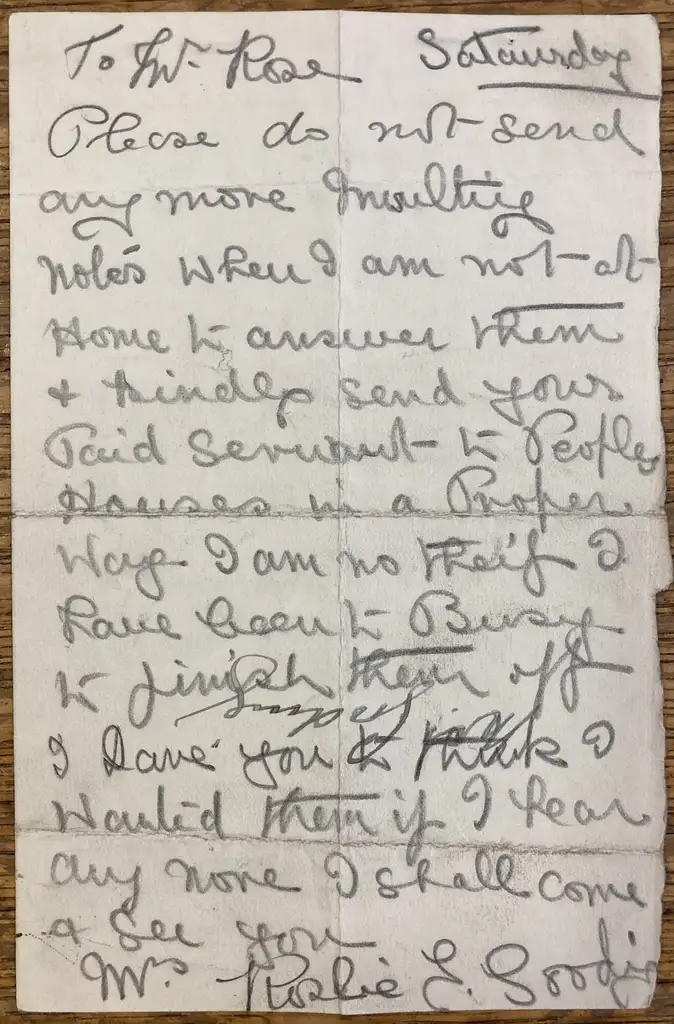 To Mr Rose Sataurday
Please do not send
any more Insulting
notes when I am not at
Home to answer them
& kindly send yours
Paid Servant to Peoples
Houses in a Proper
Way I am no theif I
have been to Busy
to finish them off
I dare you to think I
Wanted them if I hear
any more I shall come
& See you
Mrs Roslie E.